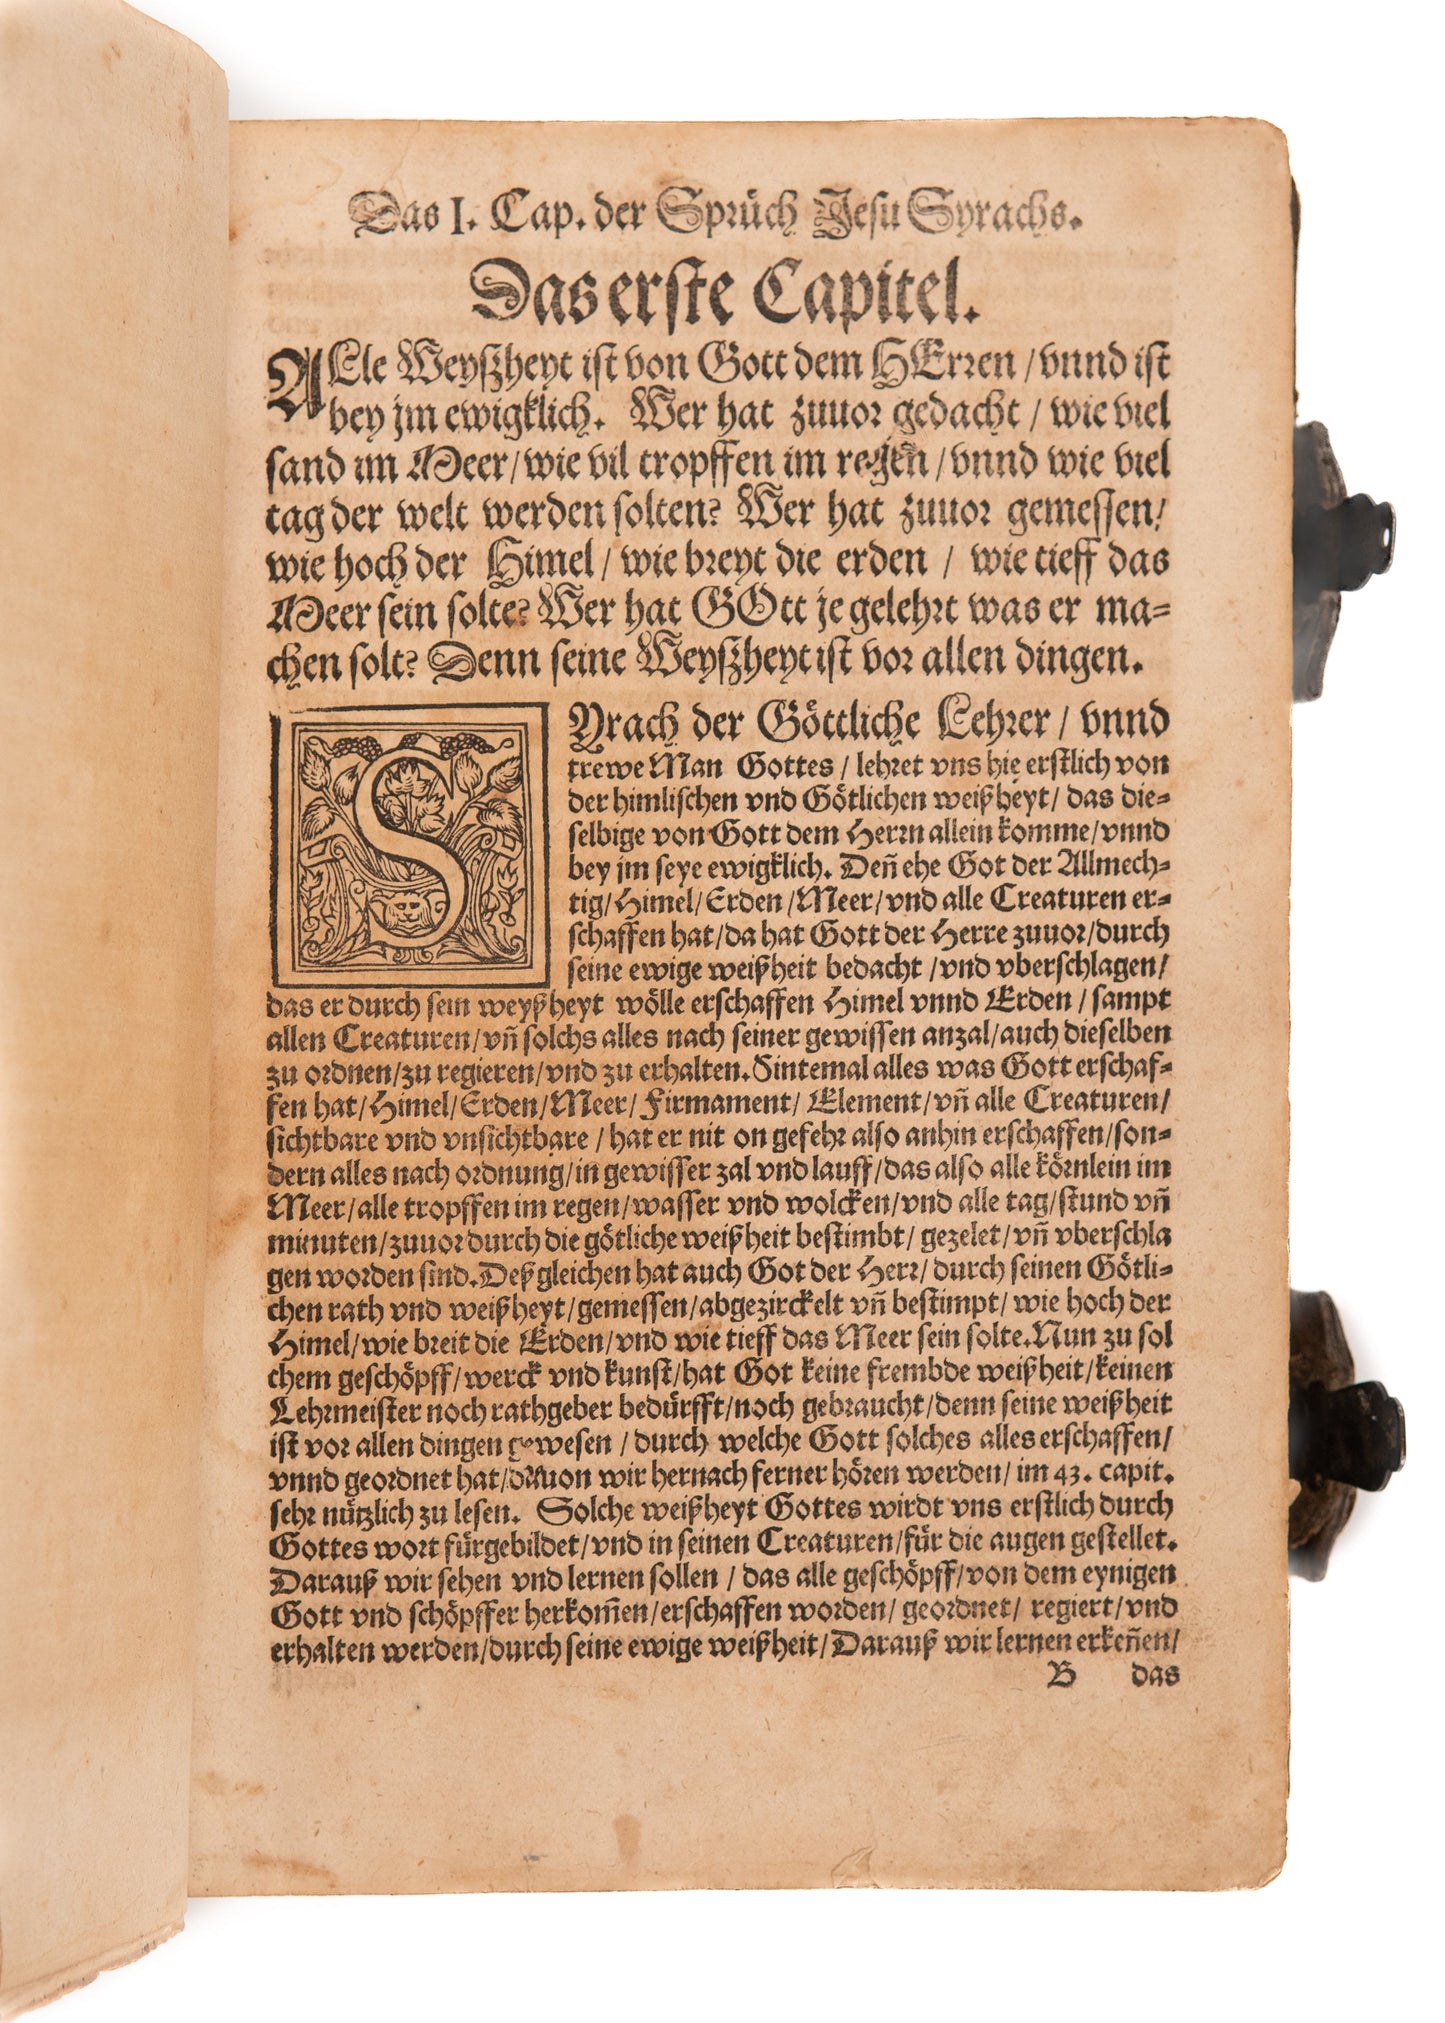 Das I. Cap. der Sprüch Jesu Syrachs.
Das erste Capitel.
ALle Weyßheyt ist von Gott dem HErren / vnnd ist
bey jm ewigklich. Wer hat zuuor gedacht / wie viel
sand im Meer / wie vil tropffen im regen / vnnd wie viel
tag der welt werden solten? Wer hat zuuor gemessen /
wie hoch der Himel / wie breyt die erden / wie tieff das
Meer sein solte? Wer hat GOtt je gelehrt was er ma=
chen solt? Denn seine Weyßheyt ist vor allen dingen.
SYrach der Göttliche Lehrer / vnnd
trewe Man Gottes / lehret vns hie erstlich von
der himlischen vnd Götlichen weißheyt / das die=
selbige von Gott dem Herrn allein komme / vnnd
bey jm seye ewigklich. Deñ ehe Got der Allmech=
tig / Himel / Erden / Meer / vnd alle Creaturen er=
schaffen hat / da hat Gott der Herre zuuor / durch
seine ewige weißheit bedacht / vnd vberschlagen /
das er durch sein weyßheyt wölle erschaffen Himel vnnd Erden / sampt
allen Creaturen / vñ solchs alles nach seiner gewissen anzal / auch dieselben
zu ordnen / zu regieren / vnd zu erhalten. Sintemal alles was Gott erschaf=
fen hat / Himel / Erden / Meer / Firmament / Element / vñ alle Creaturen /
sichtbare vnd vnsichtbare / hat er nit on gefehr also anhin erschaffen / son=
dern alles nach ordnung / in gewisser zal vnd lauff / das also alle körnlein im
Meer / alle tropffen im regen / wasser vnd wolcken / vnd alle tag / stund vñ
minuten / zuuor durch die götliche weißheit bestimbt / gezelet / vñ vberschla
gen worden sind. Deßgleichen hat auch Got der Herr / durch seinen Götli=
chen rath vnd weißheyt / gemessen / abgezirckelt vñ bestimpt / wie hoch der
Himel / wie breit die Erden / vnd wie tieff das Meer sein solte. Nun zu sol
chem geschöpff / werck vnd kunst / hat Got keine frembde weißheit / keinen
Lehrmeister noch rathgeber bedürfft / noch gebraucht / denn seine weißheit
ist vor allen dingen gewesen / durch welche Gott solches alles erschaffen /
vnnd geordnet hat / dauon wir hernach ferner hören werden / im 43. capit.
sehr nützlich zu lesen. Solche weißheyt Gottes wirdt vns erstlich durch
Gottes wort fürgebildet / vnd in seinen Creaturen / für die augen gestellet.
Darauß wir sehen vnd lernen sollen / das alle geschöpff / von dem eynigen
Gott vnd schöpffer herkom̃en / erschaffen worden / geordnet / regiert / vnd
erhalten werden / durch seine ewige weißheit / Darauß wir lernen erkeñen /
B das